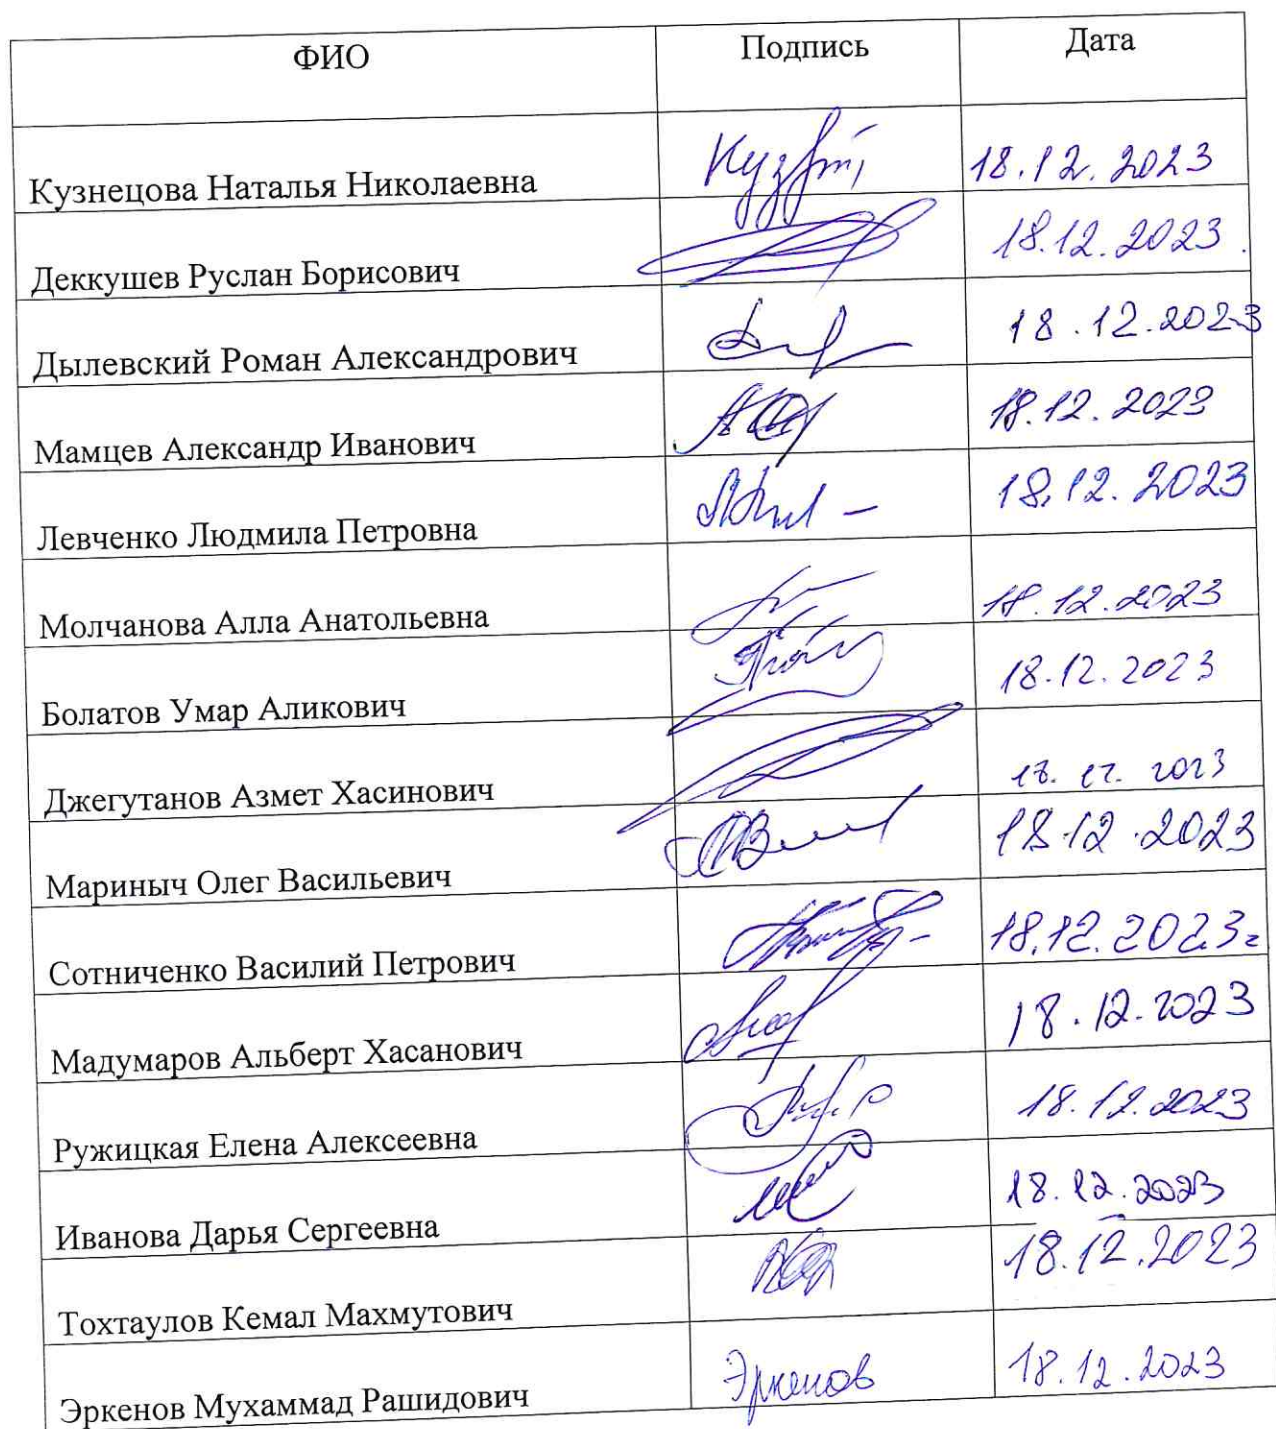 ФИО Подпись Дата
Кузнецова Наталья Николаевна 18.12.2023
Деккушев Руслан Борисович 18.12.2023
Дылевский Роман Александрович 18.12.2023
Мамцев Александр Иванович 18.12.2023
Левченко Людмила Петровна 18.12.2023
Молчанова Алла Анатольевна 18.12.2023
Болатов Умар Аликович 18.12.2023
Джегутанов Азмет Хасинович 18.12.2023
Мариныч Олег Васильевич 18.12.2023
Сотниченко Василий Петрович 18.12.2023г
Мадумаров Альберт Хасанович 18.12.2023
Ружицкая Елена Алексеевна 18.12.2023
Иванова Дарья Сергеевна 18.12.2023
Тохтаулов Кемал Махмутович 18.12.2023
Эркенов Мухаммад Рашидович Эркенов 18.12.2023